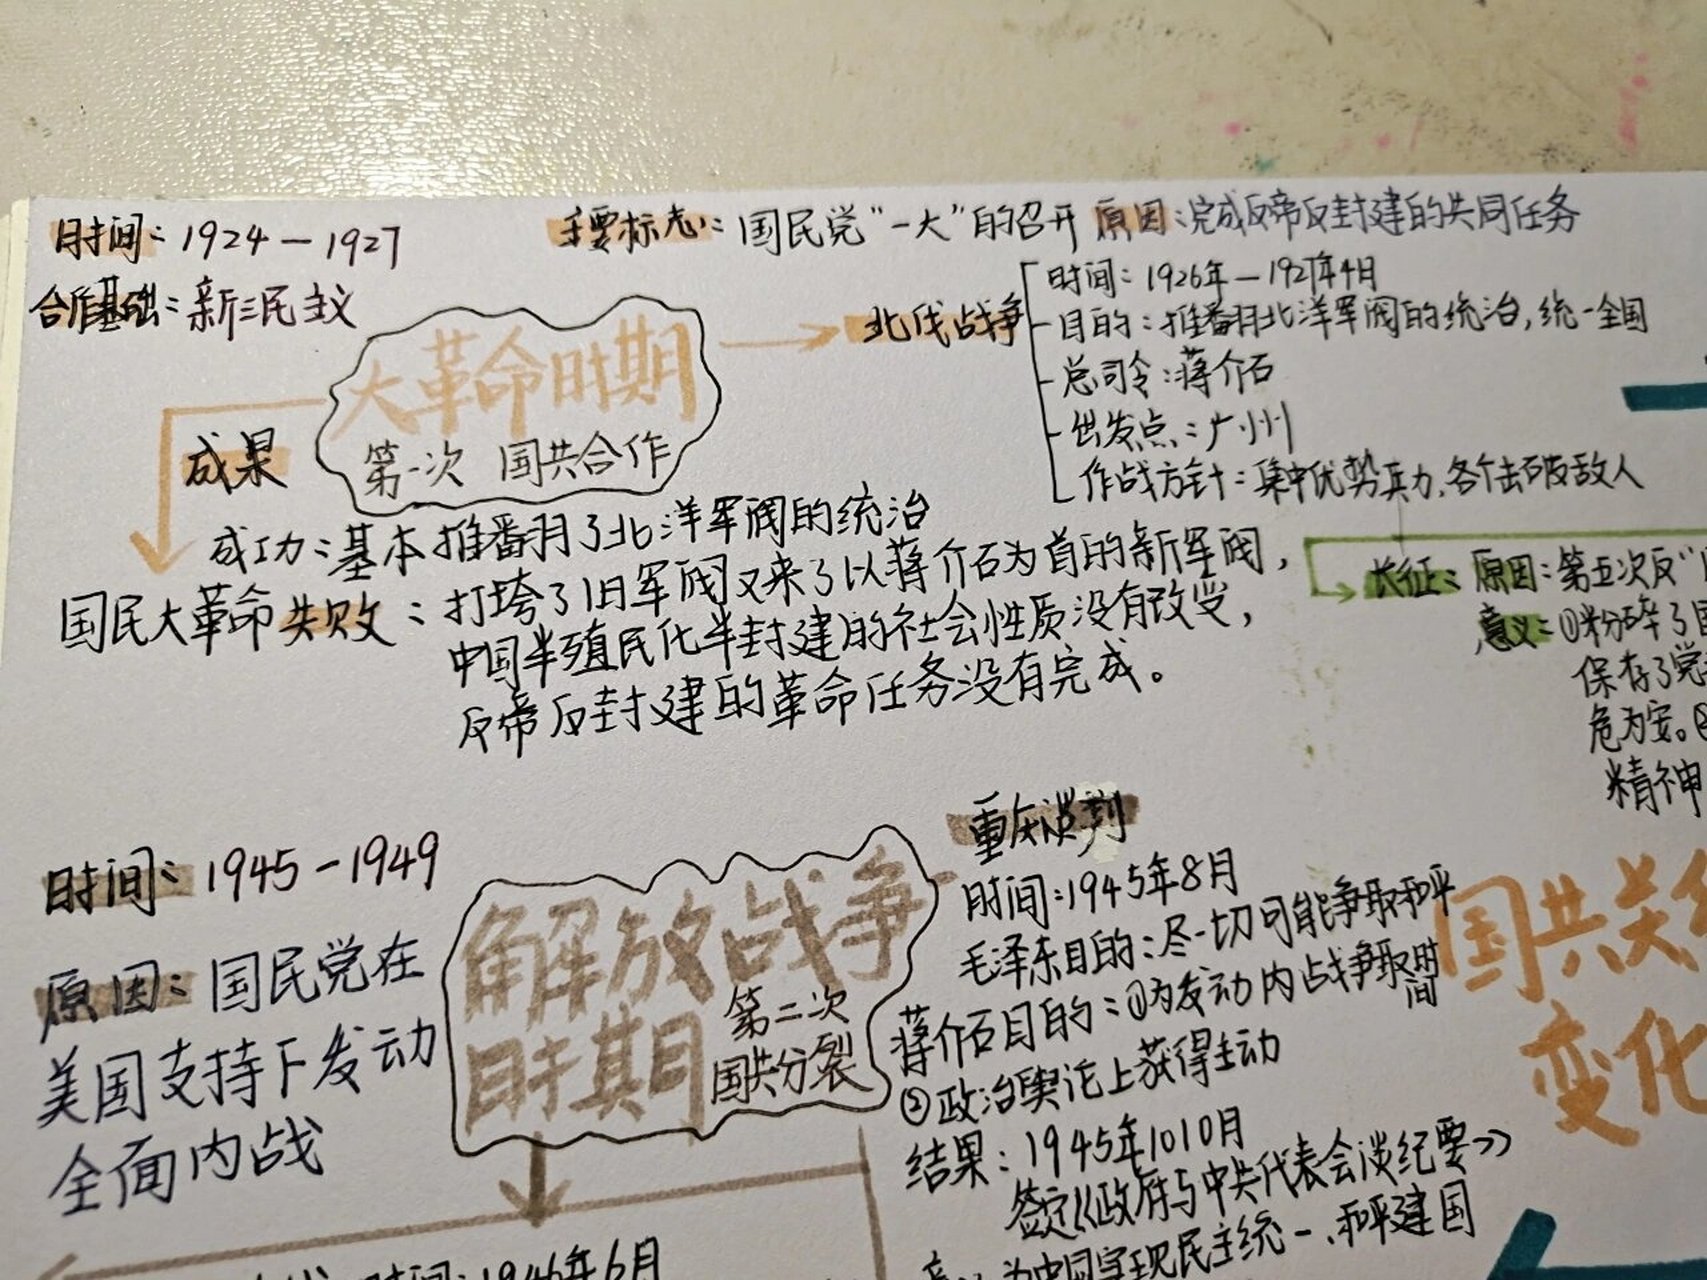 时间：1924－1927
主要标志：国民党“一大”的召开 原因：完成反帝反封建的共同任务
合作基础：新三民主义
大革命时期
第一次 国共合作
北伐战争
时间：1926年－1927年4月
目的：推翻北洋军阀的统治，统一全国
总司令：蒋介石
出发点：广州
作战方针：集中优势兵力，各个击破敌人
成果
成功：基本推翻了北洋军阀的统治
国民大革命失败：打垮了旧军阀又来了以蒋介石为首的新军阀，
中国半殖民化半封建的社会性质没有改变，
反帝反封建的革命任务没有完成。
长征：原因：第五次反“
意义：①粉碎了国
保存了党
危为安。②
精神
时间：1945－1949
原因：国民党在
美国支持下发动
全面内战
解放战争
时期
第二次
国共分裂
重庆谈判
时间：1945年8月
毛泽东目的：尽一切可能争取和平
蒋介石目的：①为发动内战争取时间
②政治舆论上获得主动
结果：1945年1010月
签定《政府与中共代表会谈纪要》
为中国实现民主统一、和平建国
国共关
变化
时间：1946年6月